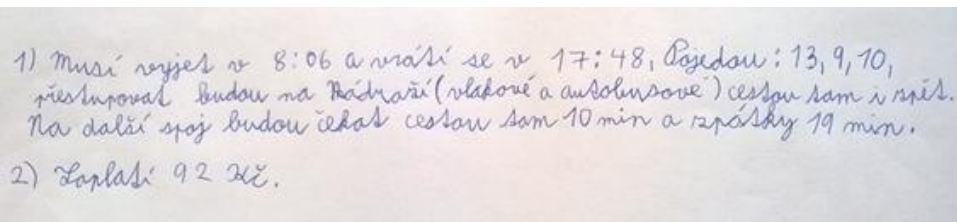 1) Musí vyjet v 8:06 a vrátí se v 17:48, Pojedou: 13, 9, 10,
přestupovat budou na Nádraží (vlakové a autobusové) cestou tam i zpět.
Na další spoj budou čekat cestou tam 10 min a zpátky 19 min.
2) Zaplatí 92 Kč.